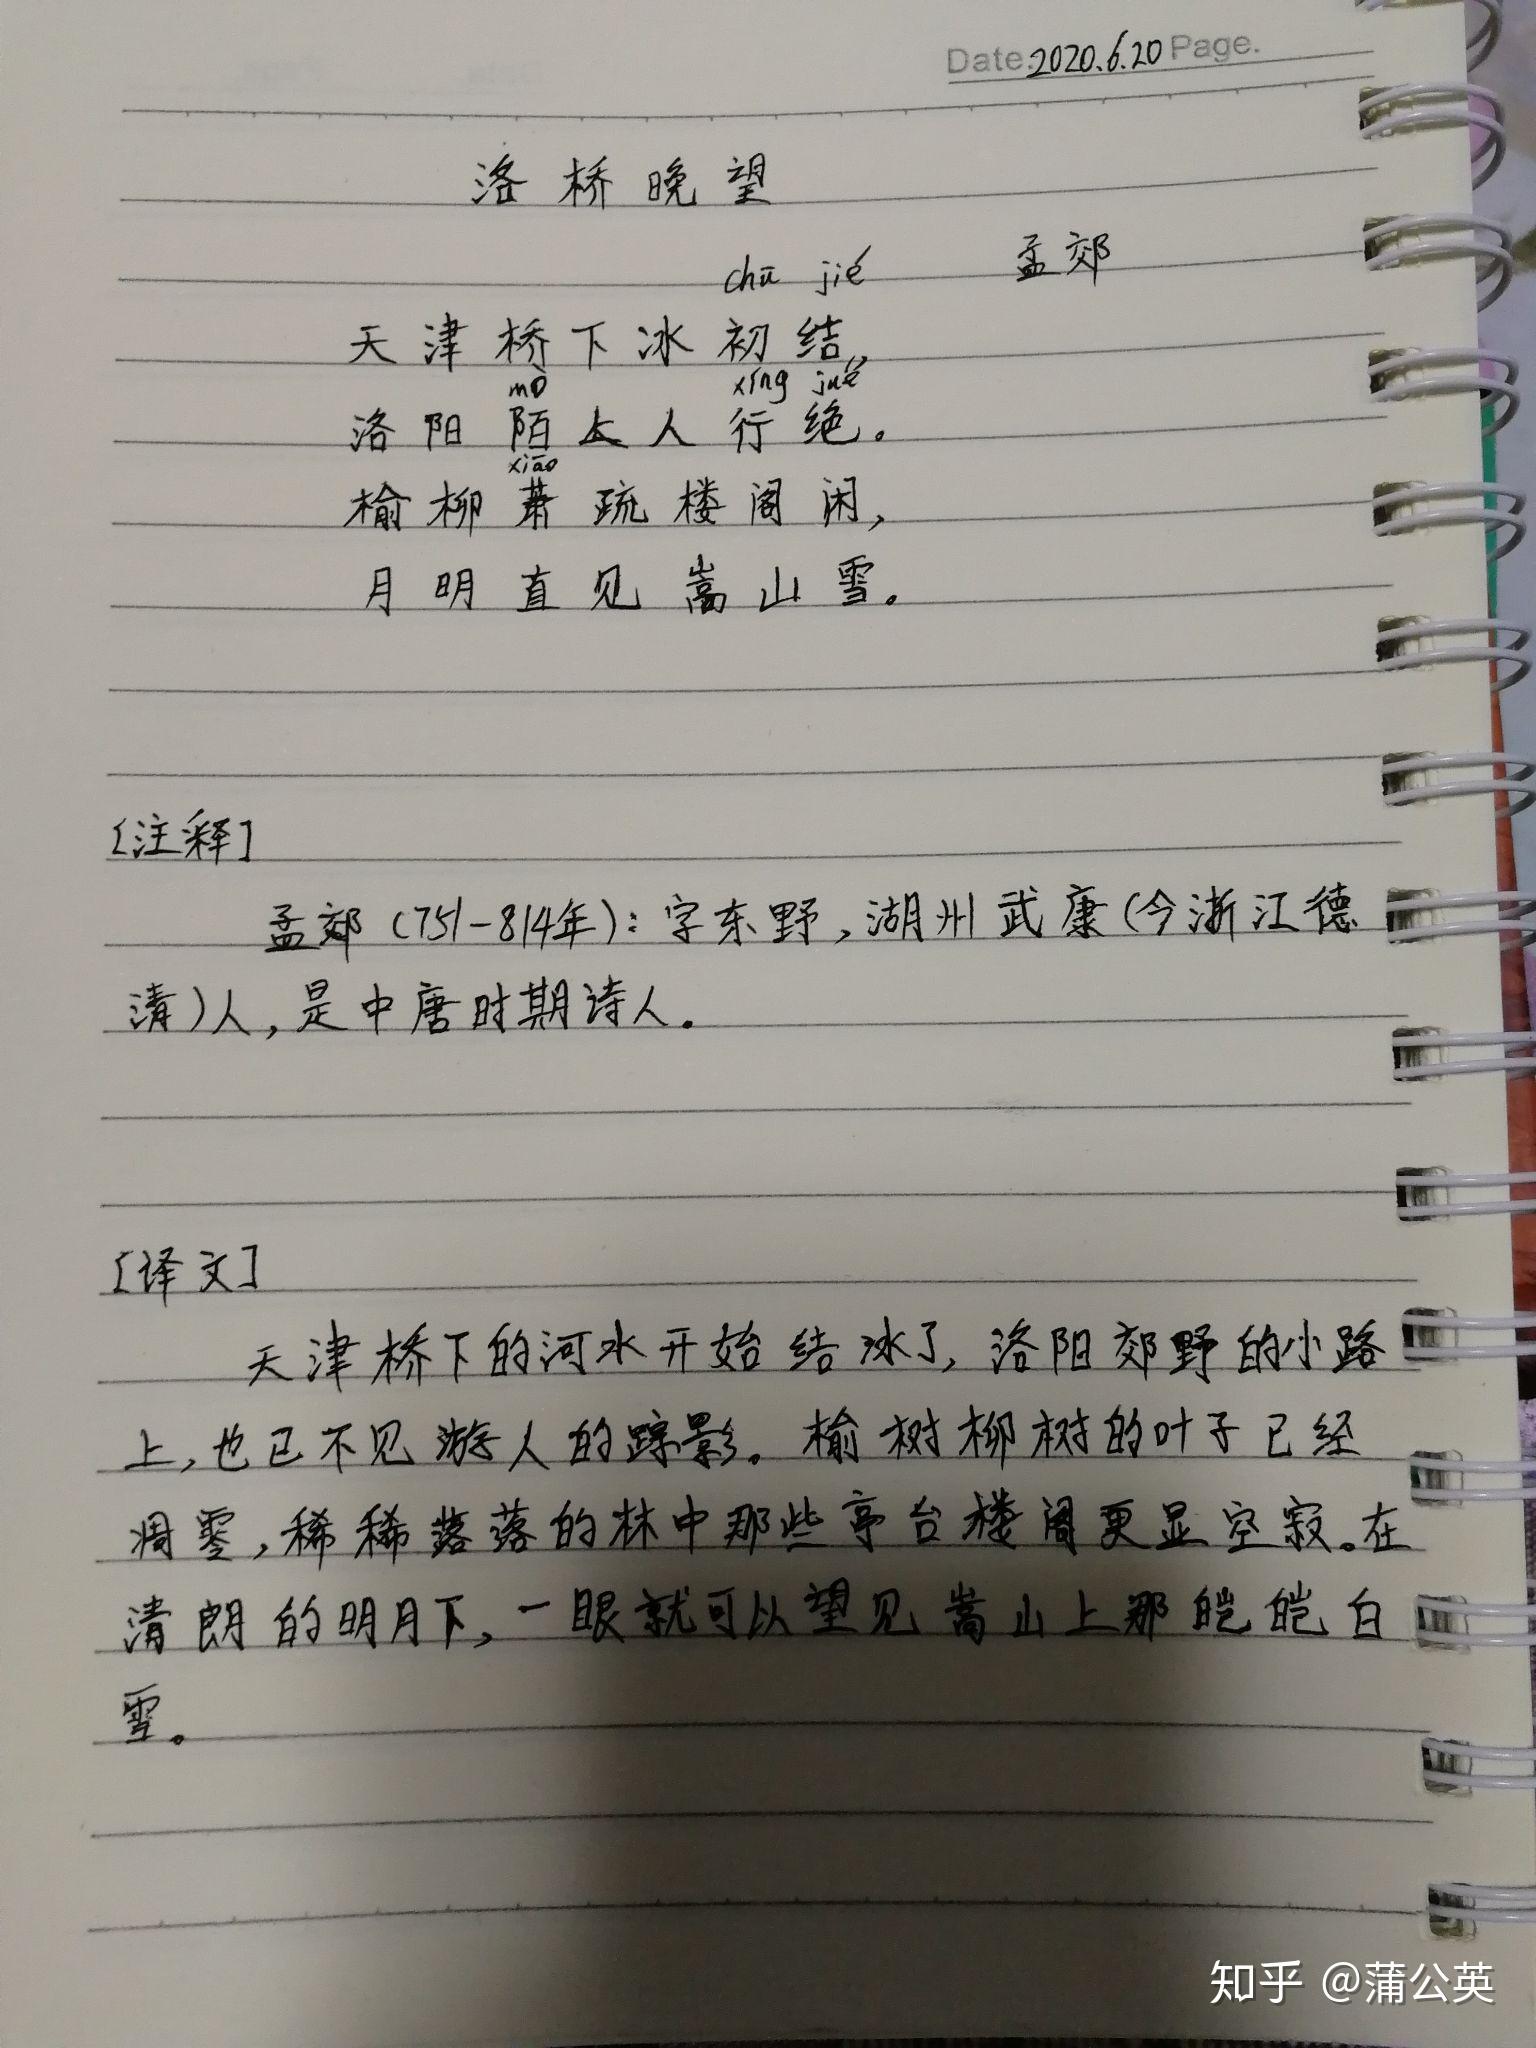 Date.2020.6.20 Page.
洛桥晚望
孟郊
chū jié
天津桥下冰初结,
mò xíng jué
洛阳陌上人行绝。
xiāo
榆柳萧疏楼阁闲,
月明直见嵩山雪。
[注释]
孟郊(751-814年):字东野,湖州武康(今浙江德
清)人,是中唐时期诗人.
[译文]
天津桥下的河水开始结冰了,洛阳郊野的小路
上,也已不见游人的踪影。榆树柳树的叶子已经
凋零,稀稀落落的林中那些亭台楼阁更显空寂。在
清朗的明月下,一眼就可以望见嵩山上那皑皑白
雪。
知乎 @蒲公英